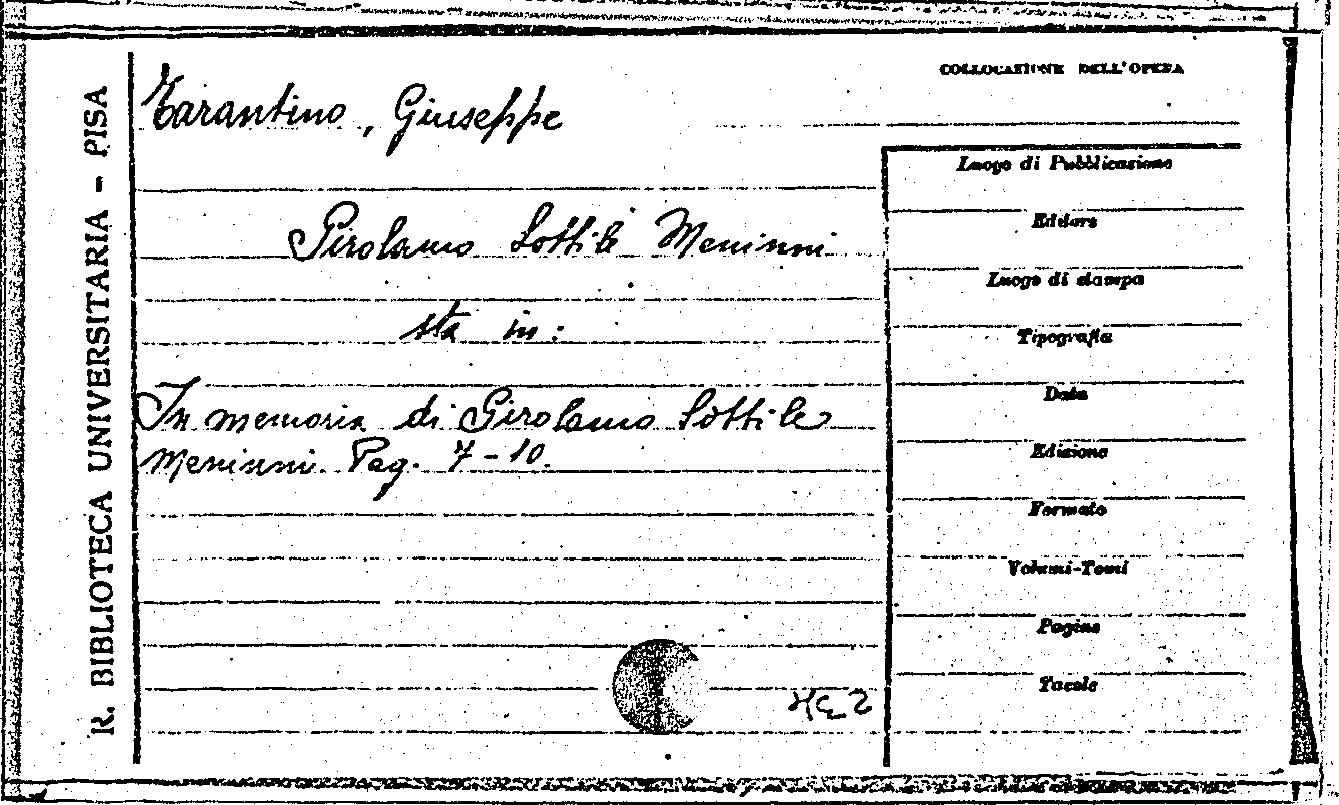 R. BIBLIOTECA UNIVERSITARIA - PISA
Tarantino, Giuseppe
Girolamo Sottile Meninni
sta in:
In memoria di Girolamo Sottile
Meninni. Pag. 7-10.
COLLOCAZIONE DELL'OPERA
Luogo di Pubblicazione
Editore
Luogo di stampa
Tipografia
Data
Edizione
Formato
Volumi-Tomi
Pagine
Tavole